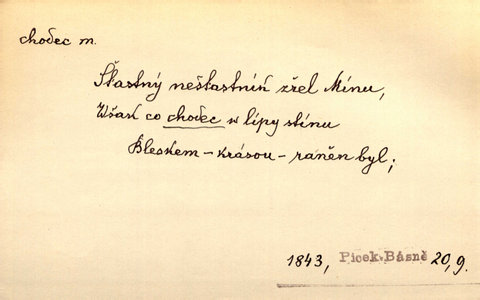 chodec m.
Šťastný nešťastník zřel Mínu,
Wšak co chodec w lípy stínu
Bleskem – krásou – raněn byl;
1843, Picek. Básně 20, 9.